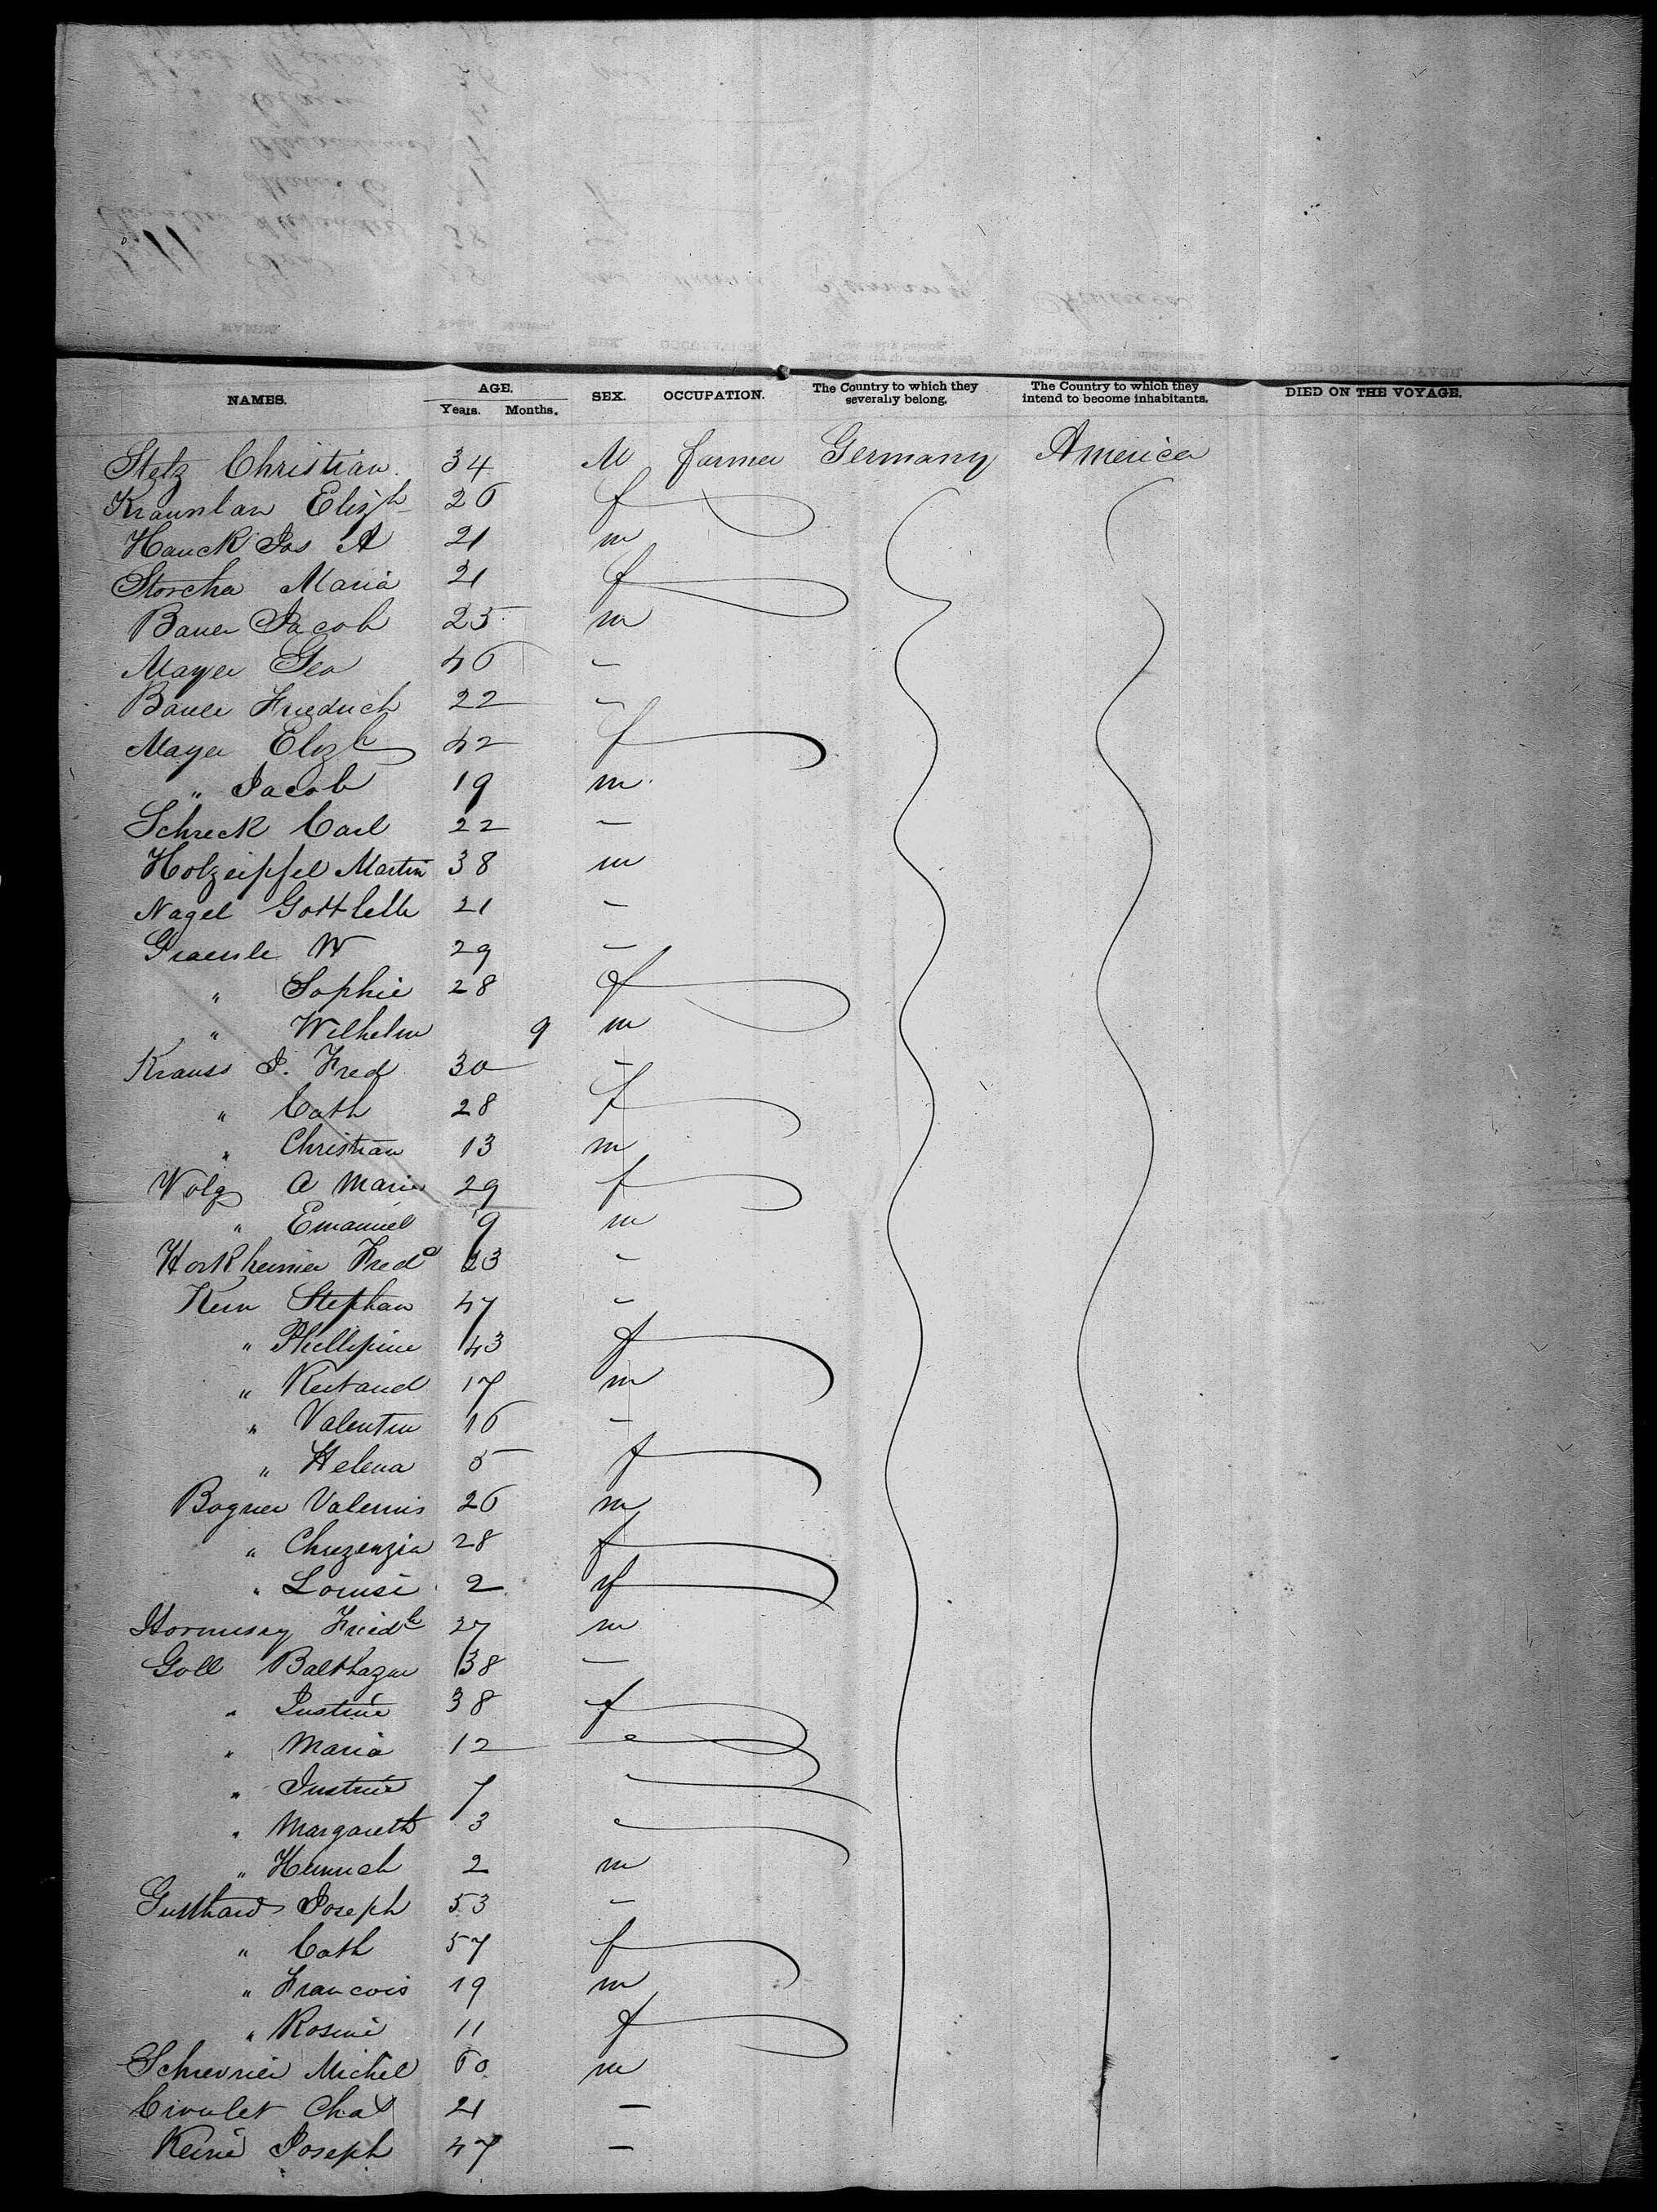 NAMES. AGE. SEX. OCCUPATION. The Country to which they severally belong. The Country to which they intend to become inhabitants. DIED ON THE VOYAGE.
Years. Months.
Stelz Christian 34 M farmer Germany America
Elizh 26 f
Hauck Jos A 21 m
Storcha Maria 21 f
Bauer Jacob 25 m
Mayer Geo 46 -
Bauer Friedrich 22 -
Mayer Elizh 42 f
" Jacob 19 m
Schreck Carl 22 -
Holzeipfel Martin 38 m
Nagel Gottlelb 21 -
Graessle W 29 -
" Sophie 28 f
" Wilhelm 9 m
Krauss J. Fred 30 -
" Cath 28 f
" Christian 13 m
Volz A Maria 29 f
" Emanuel 9 m
Horkheimer Fredc 23 -
Kern Stephan 47 -
" Phillipine 43 f
" 17 m
" Valentin 16 -
" Helena 5 f
Bogner 26 m
" Chrezenzia 28 f
" Louise 2 f
Friedh 27 m
Goll Balthazar 38 -
" Justine 38 f
" Maria 12
" Justine 7
" Margareth 3
" Heinrich 2 m
Joseph 53 -
" Cath 57 f
" Francois 19 m
" Rosine 11 f
Michel 60 m
Chas 21 -
Joseph 47 -